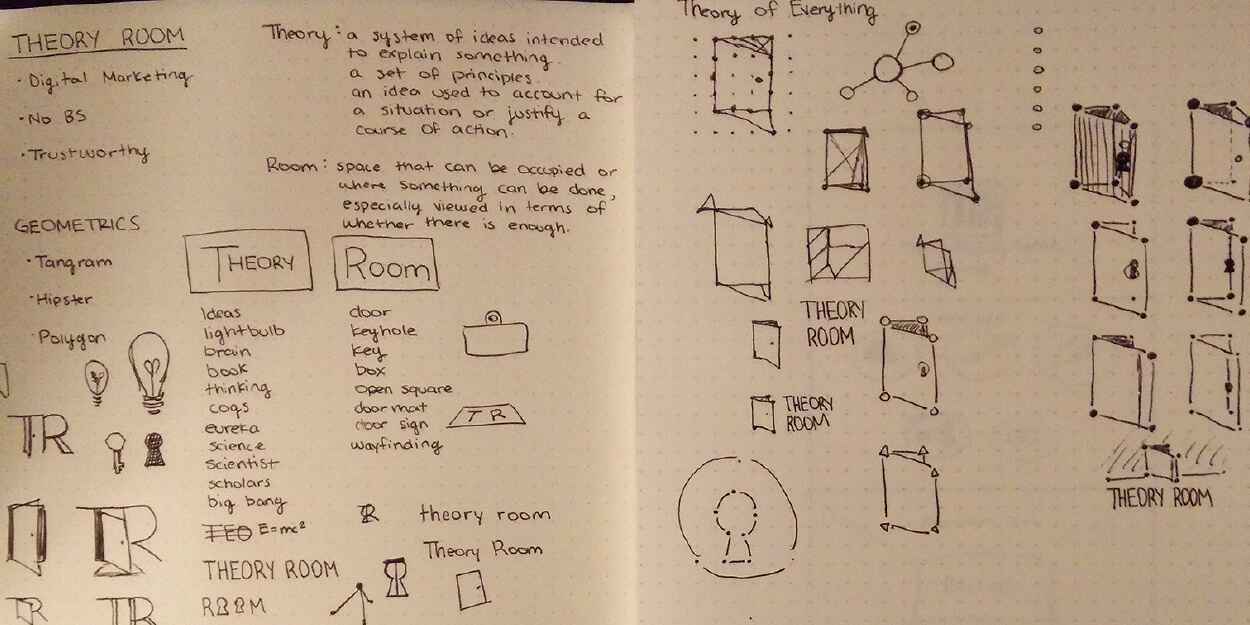 THEORY ROOM
· Digital Marketing
· No BS
· Trustworthy
Theory: a system of ideas intended
to explain something.
a set of principles.
an idea used to account for
a situation or justify a
course of action.
Room: space that can be occupied or
where something can be done,
especially viewed in terms of
whether there is enough.
GEOMETRICS
· Tangram
· Hipster
· Polygon
THEORY
Ideas
lightbulb
brain
book
thinking
cogs
eureka
science
scientist
scholars
big bang
E=mc²
Room
door
keyhole
key
box
open square
door mat
door sign
wayfinding
TR
TR
TR
TR
TR
TR
THEORY ROOM
ROOM
theory room
Theory Room
Theory of Everything
THEORY
ROOM
THEORY
ROOM
THEORY ROOM